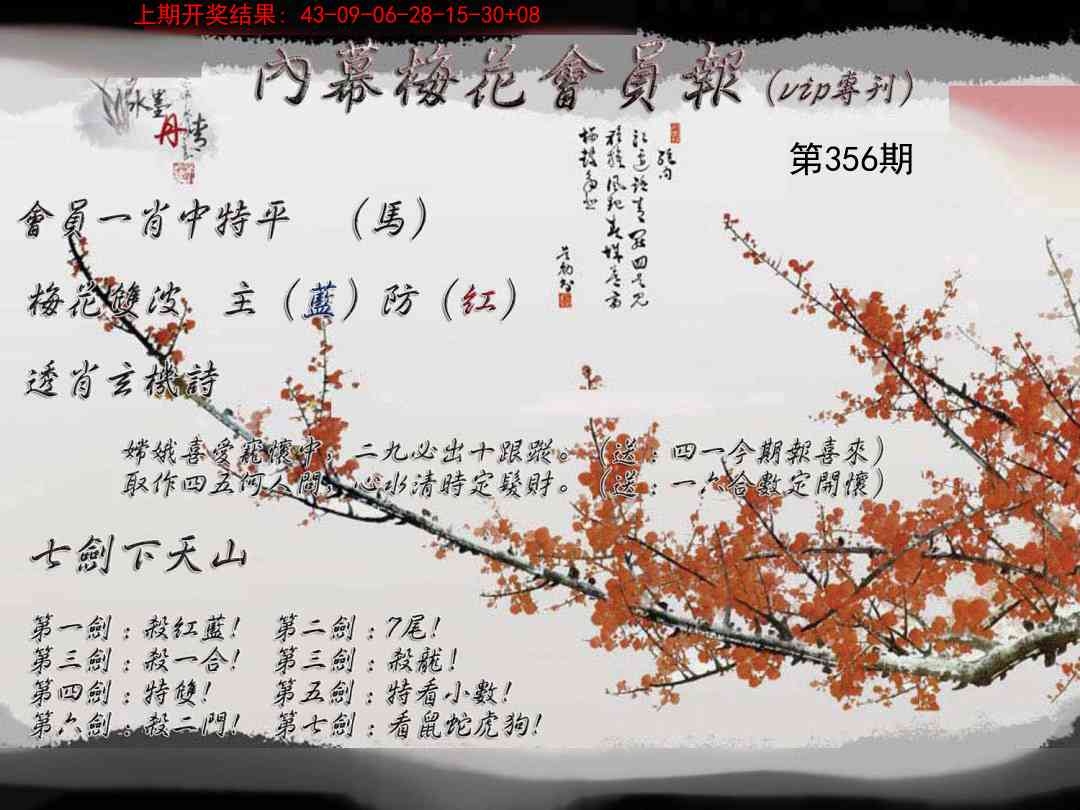 上期开奖结果: 43-09-06-28-15-30+08
內幕梅花會員報(vip專刊)
水墨
丹青
第356期
會員一肖中特平 (馬)
梅花雙波 主(藍)防(红)
透肖玄機詩
嫦娥喜愛寵懷中，二九必出十跟蹤。(送:四一今期報喜來)
取作四五何人間，心水清時定發財。(送:一六合數定開懷)
七劍下天山
第一劍:殺红藍! 第二劍:7尾!
第三劍:殺一合! 第三劍:殺龍!
第四劍:特雙! 第五劍:特看小數!
第六劍:殺二門! 第七劍:看鼠蛇虎狗!